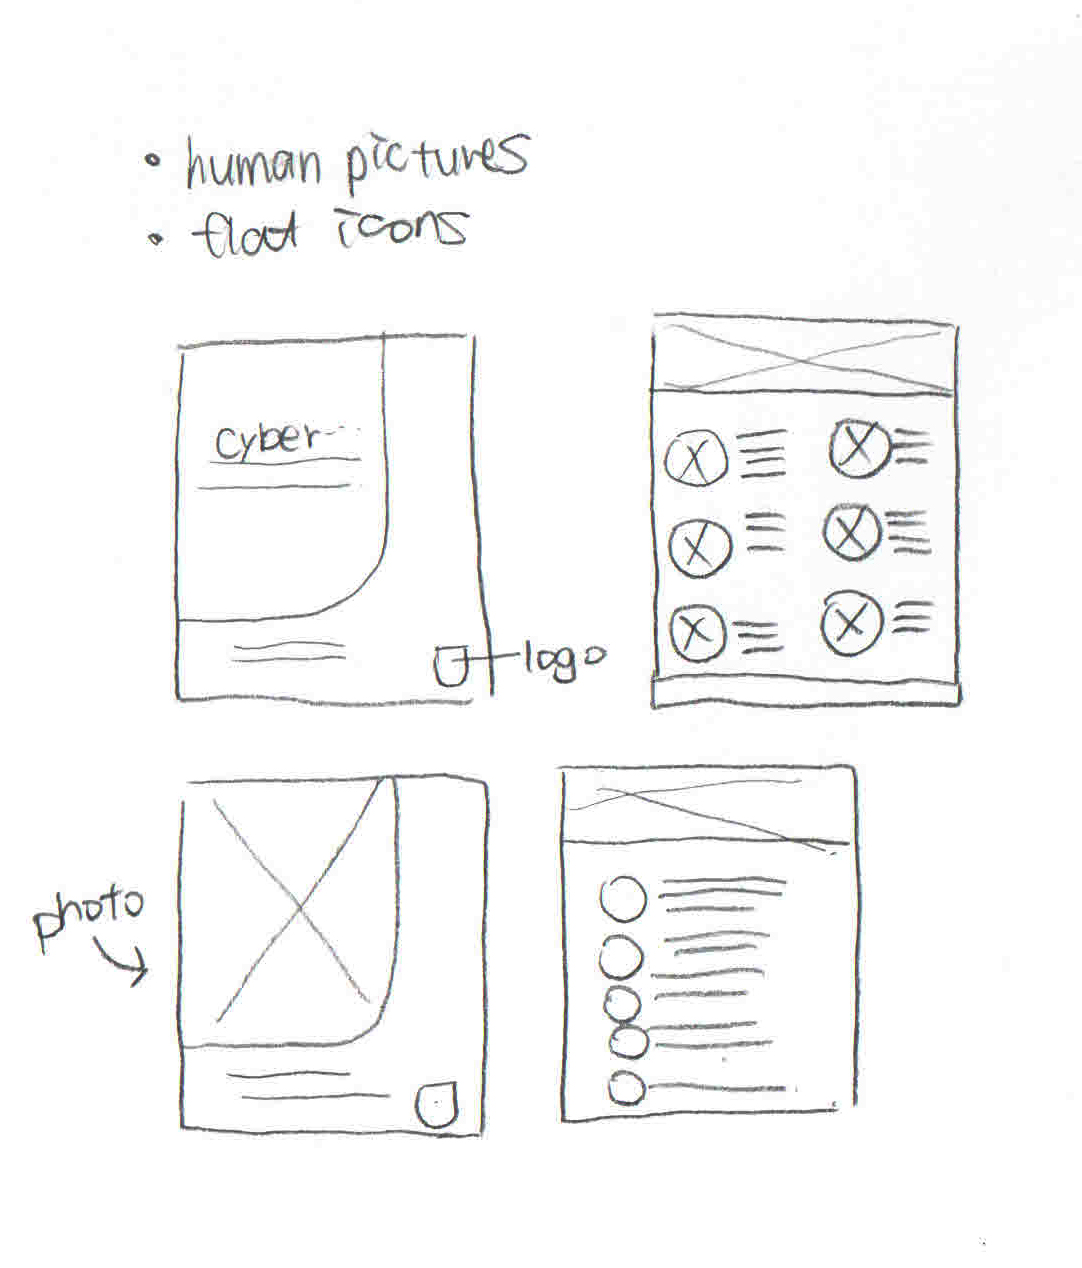 • human pictures
• flat icons
cyber...
logo
photo